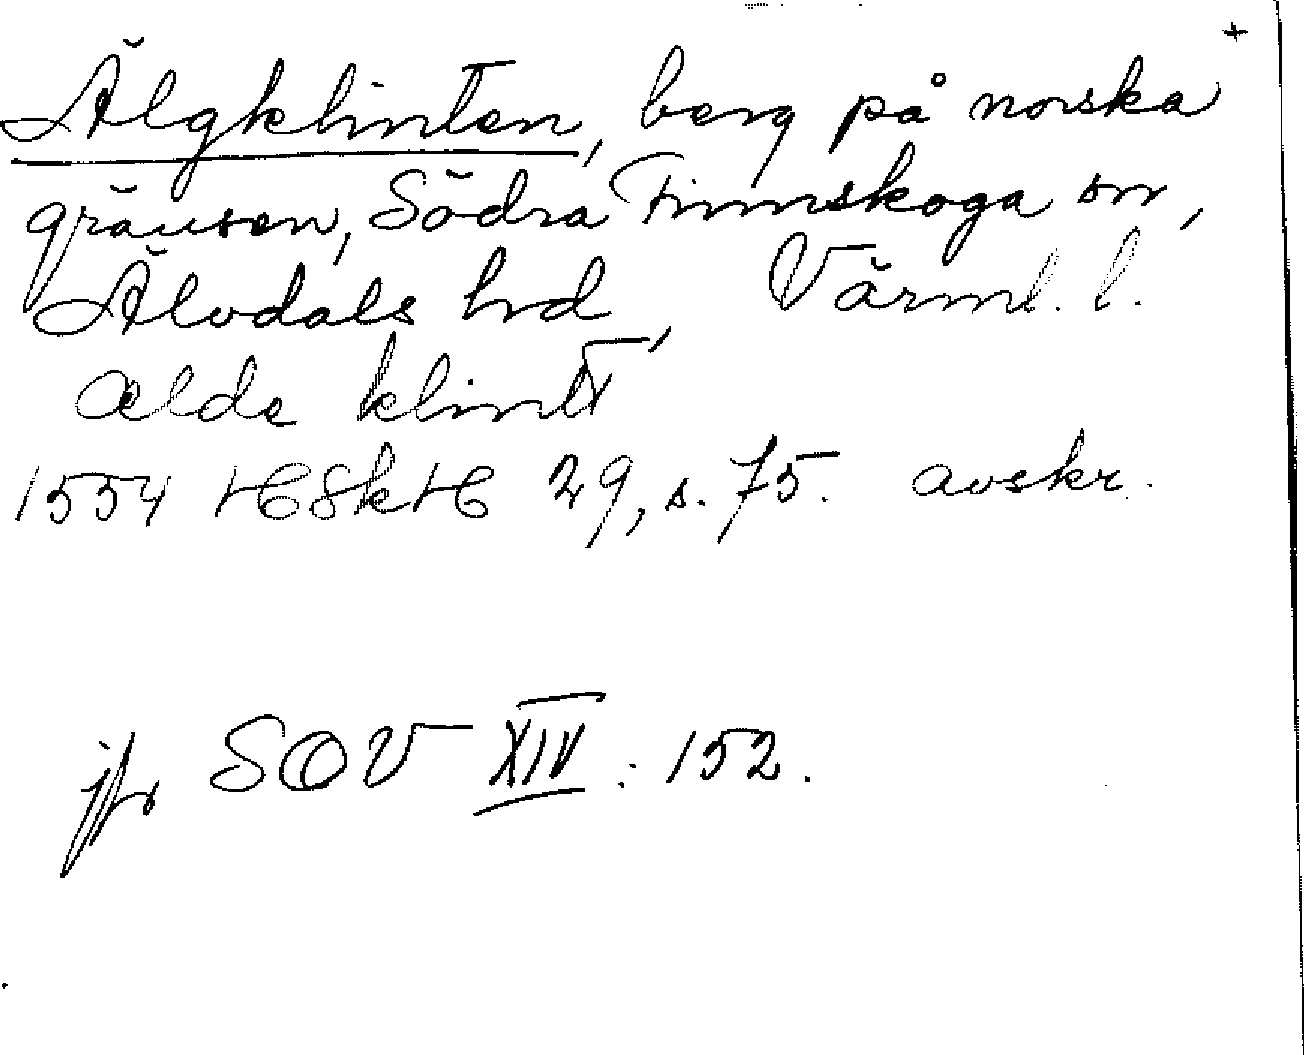 +
Älgklinten, berg på norska
gränsen, Södra Finnskoga sn,
Älvdals hrd, Värml. l.
Ælde klintt
1554 HSkH 29, s. 75. avskr.
jfr SOV XIV: 152.